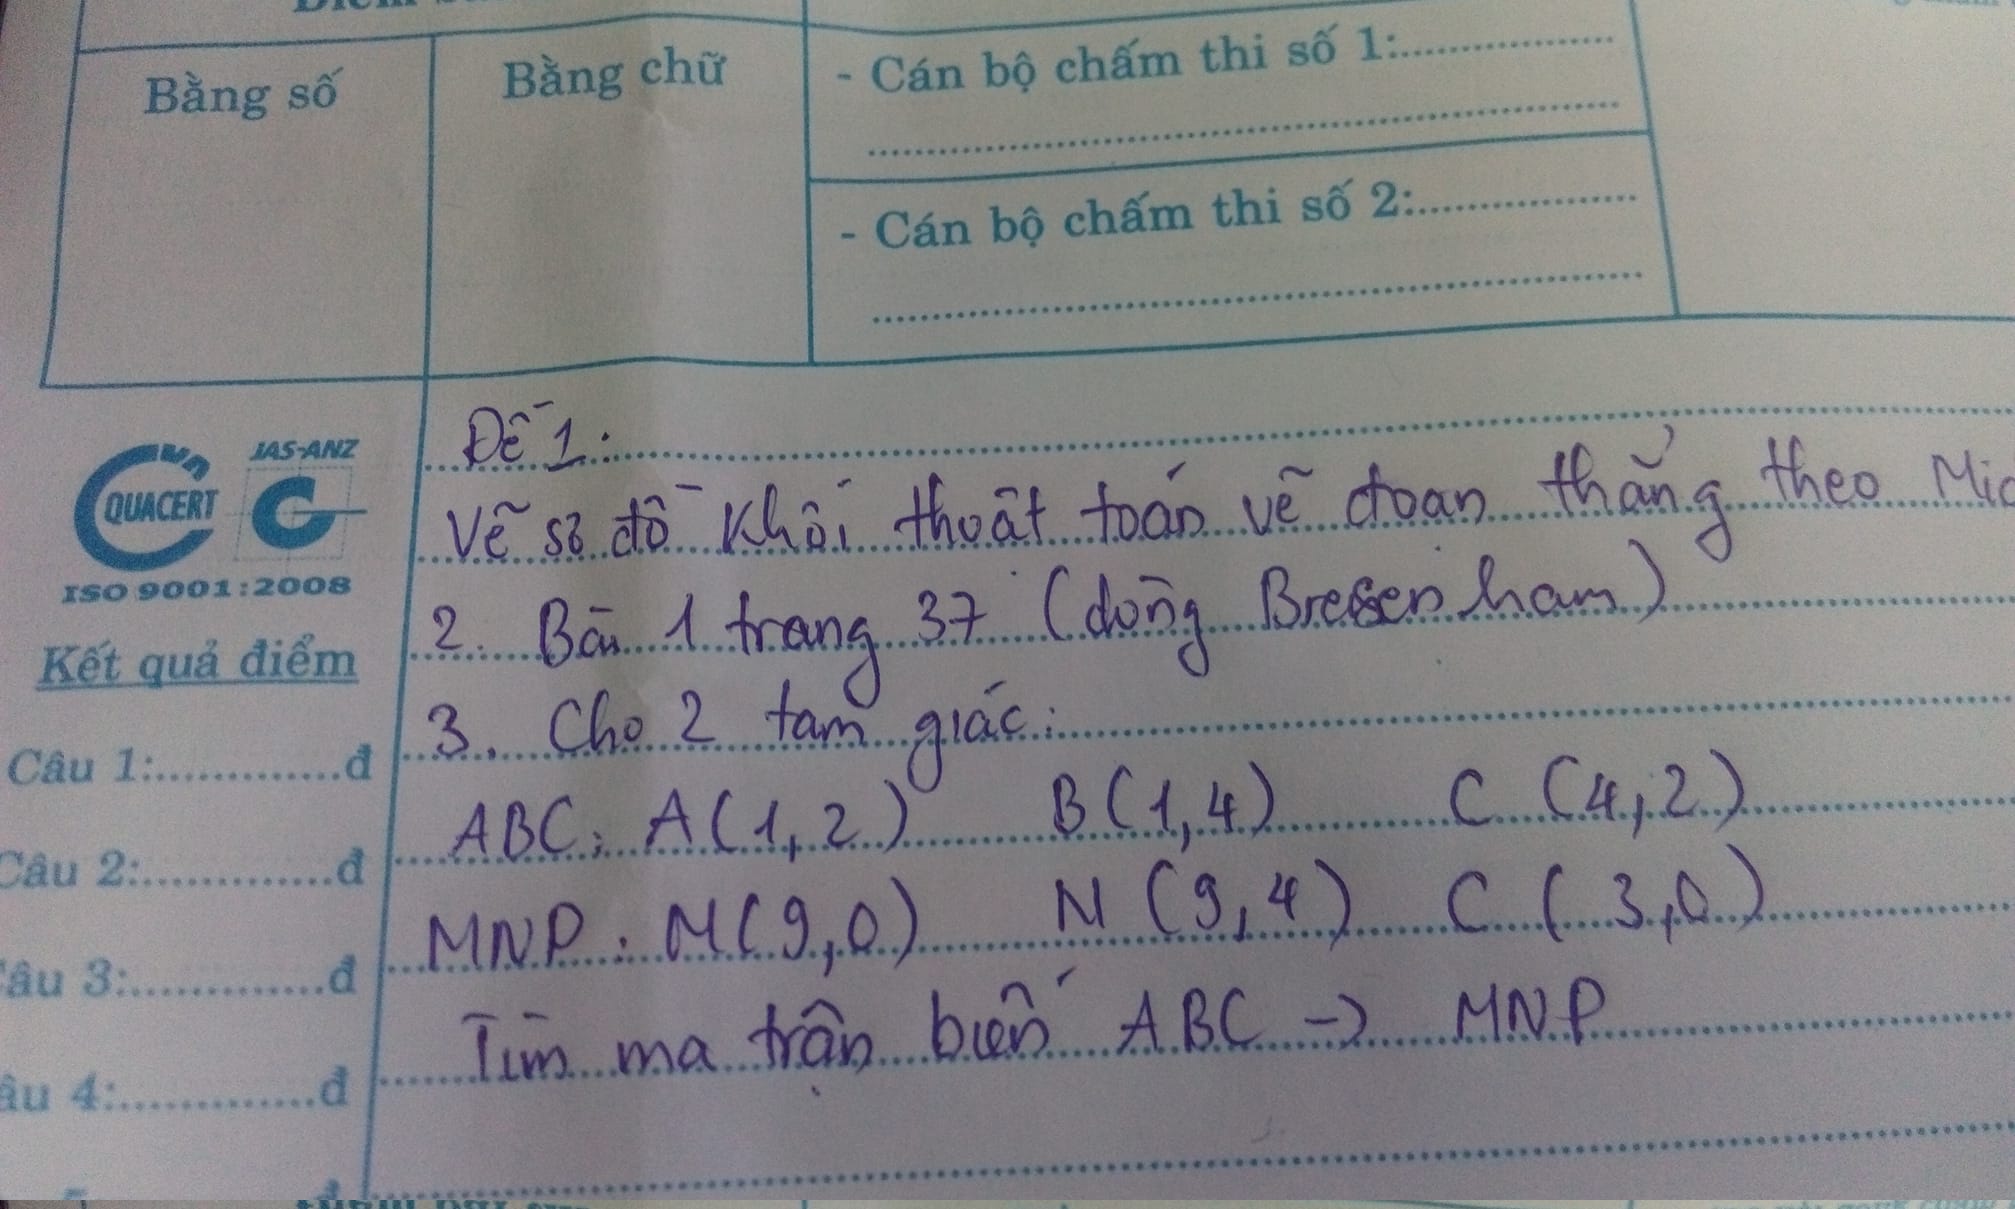 Bằng số
Bằng chữ
- Cán bộ chấm thi số 1:....................
- Cán bộ chấm thi số 2:....................
JAS-ANZ
QUACERT
ISO 9001:2008
Kết quả điểm
Câu 1:.............đ
Câu 2:.............đ
Câu 3:.............đ
âu 4:.............đ
Đề 1:
Vẽ sơ đồ khối thuật toán vẽ đoạn thẳng theo Mid
2. Bài 1 trang 37 (dùng Bresenham)
3. Cho 2 tam giác:
ABC: A(1,2) B(1,4) C(4,2)
MNP: M(9,0) N(9,4) C(3,0)
Tìm ma trận biến ABC -> MNP